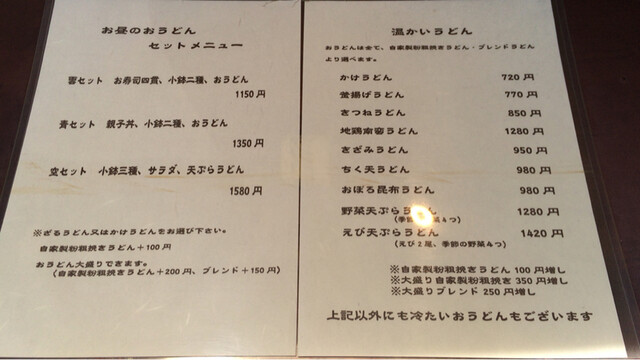 お昼のおうどん
セットメニュー
雲セット　お寿司四貫、小鉢二種、おうどん
1150 円
青セット　親子丼、小鉢二種、おうどん
1350 円
空セット　小鉢三種、サラダ、天ぷらうどん
1580 円
※ざるうどん又はかけうどんをお選び下さい。
自家製粉粗挽きうどん＋100 円
おうどん大盛りできます。
（自家製粉粗挽きうどん＋200 円、ブレンド＋150 円）
温かいうどん
おうどんは全て、自家製粉粗挽きうどん・ブレンドうどん
より選べます。
かけうどん　720 円
釜揚げうどん　770 円
きつねうどん　850 円
地鶏南蛮うどん　1280 円
きざみうどん　950 円
ちく天うどん　980 円
おぼろ昆布うどん　980 円
野菜天ぷらうどん　1280 円
（季節の野菜４つ）
えび天ぷらうどん　1420 円
（えび２尾、季節の野菜４つ）
※自家製粉粗挽きうどん 100 円増し
※大盛り自家製粉粗挽き 350 円増し
※大盛りブレンド 250 円増し
上記以外にも冷たいおうどんもございます